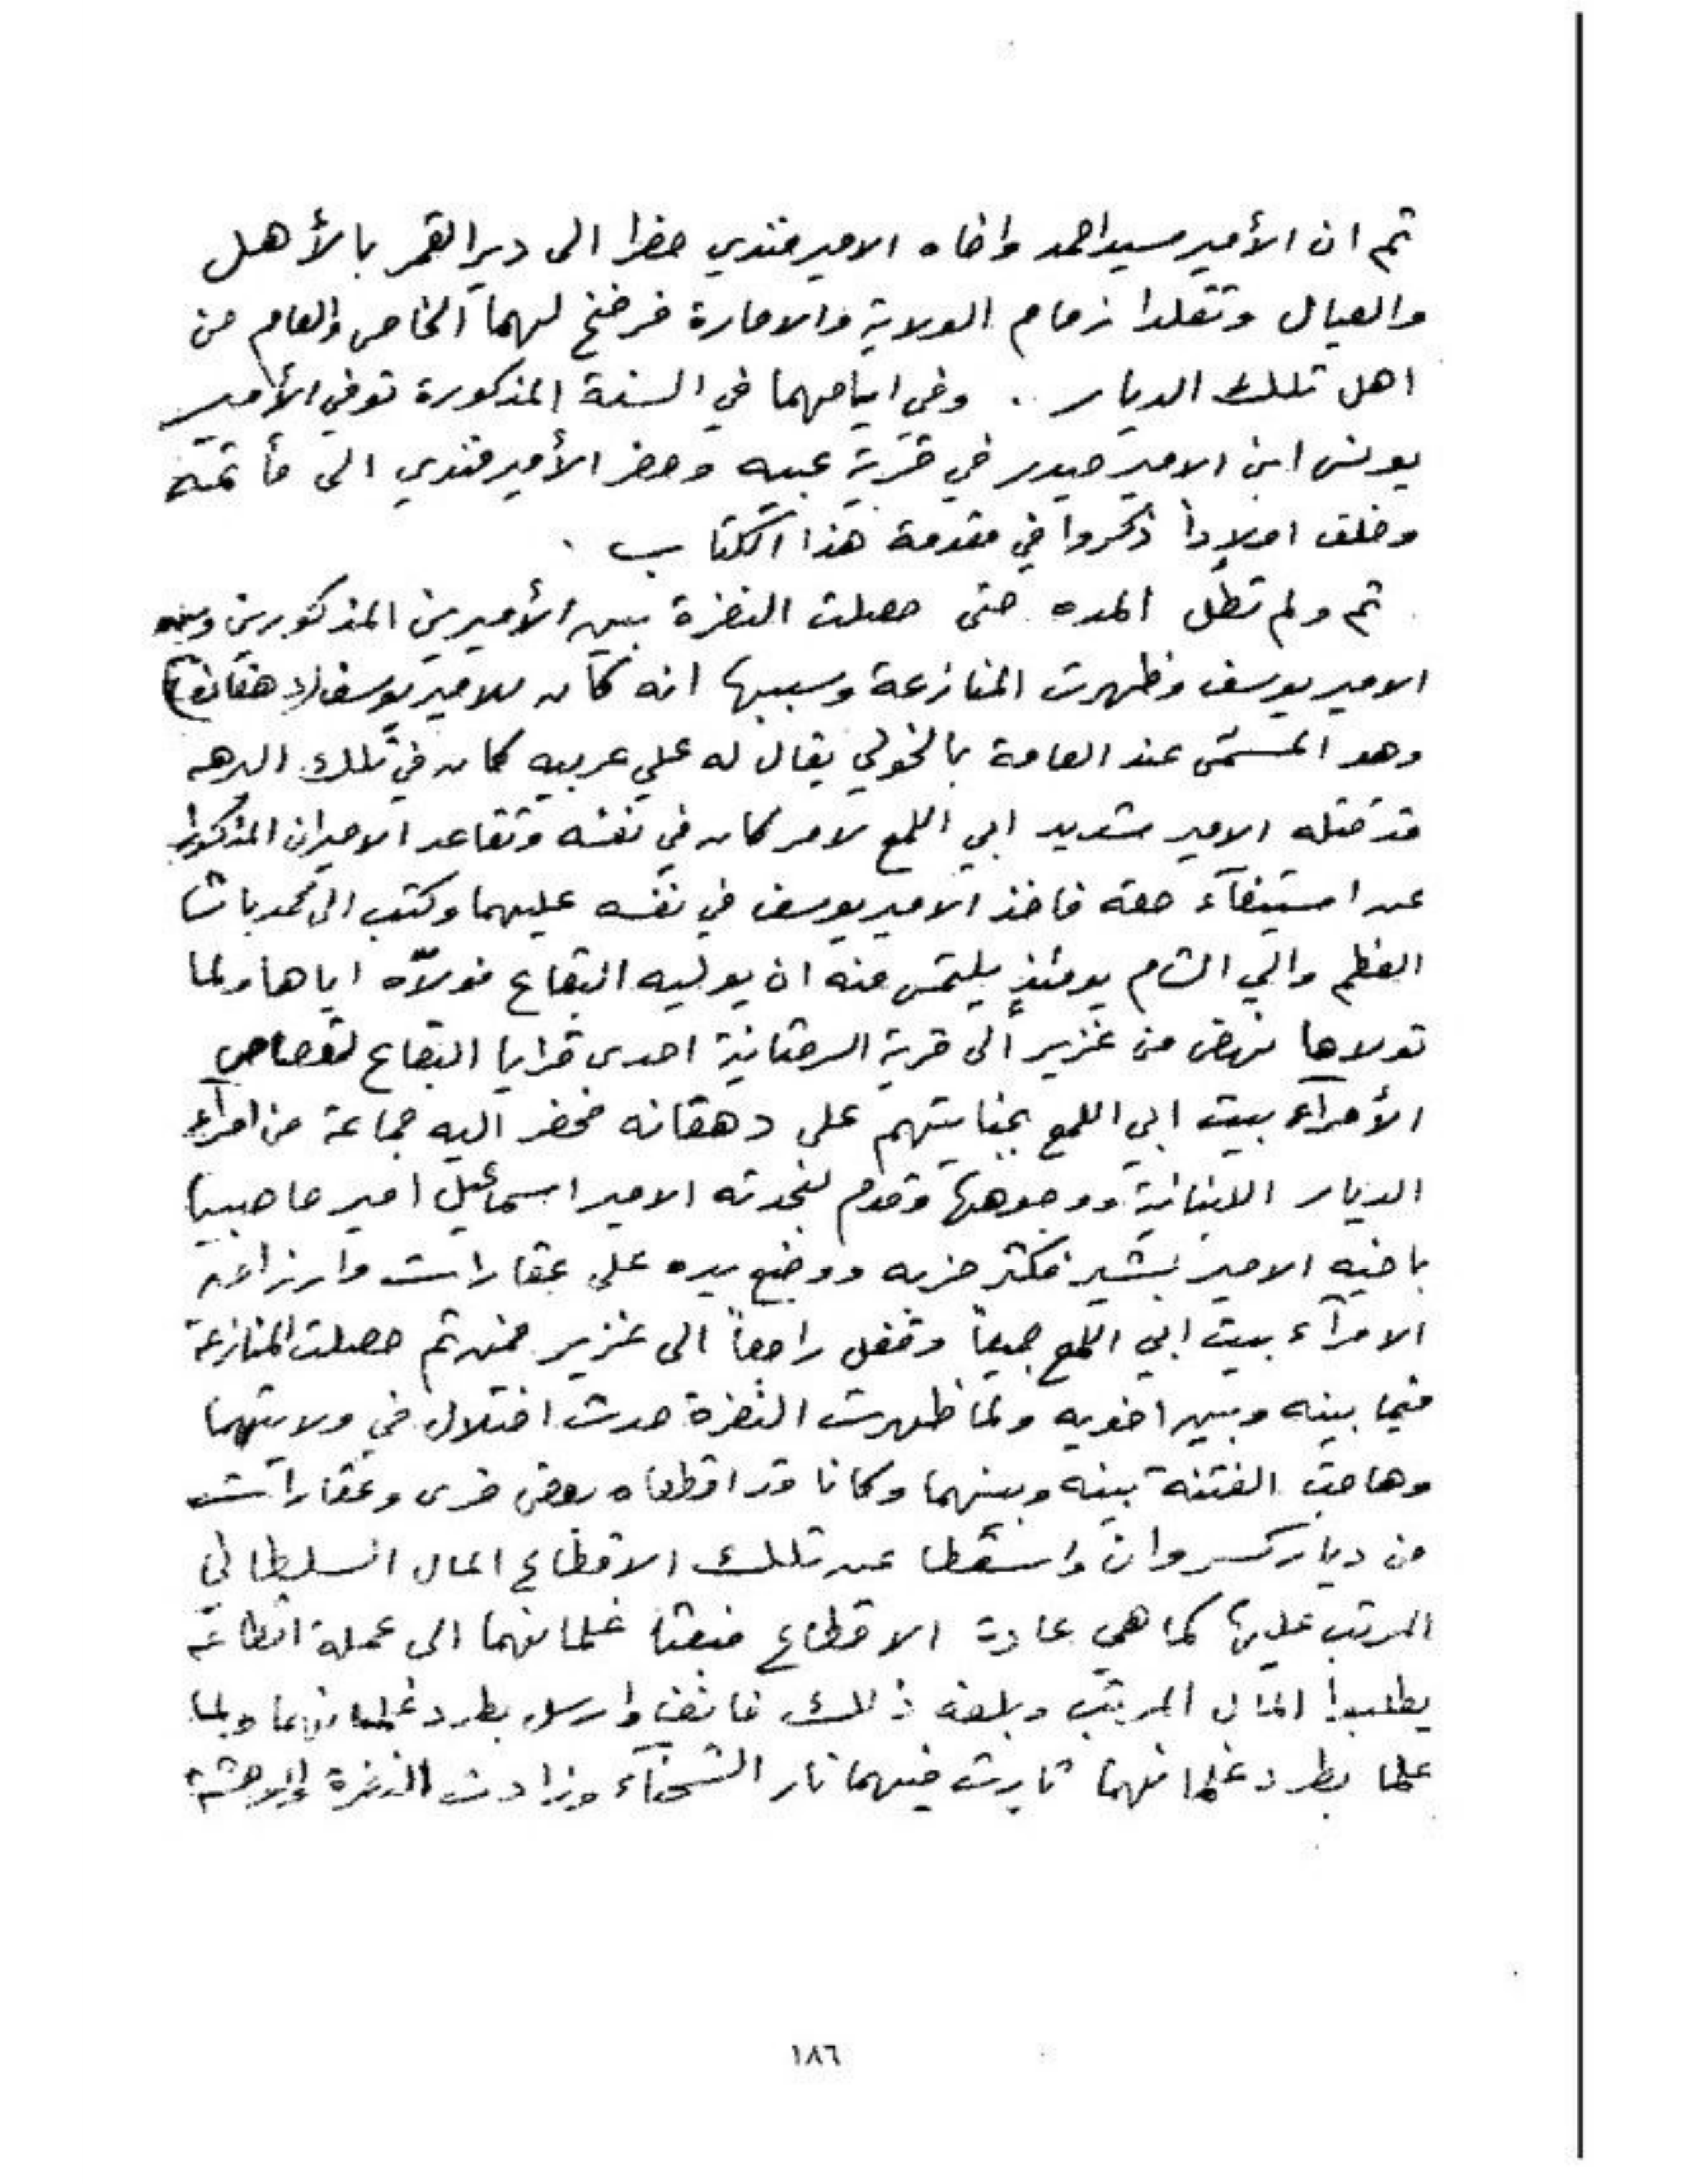 ثم ان الأمير سيد احمد واخاه الامير فندي حضرا الى دير القمر بالأهل
والعيال وتقلدا زمام الولاية والامارة فرضخ لهما الخاص والعام من
اهل تلك الديار . وفي ايامهما في السنة المذكورة توفي الأمير
يونس ابن الامير حيدر في قرية عبيه وحضر الأمير فندي الى مأتمه
وخلف اولاداً ذكروا في مقدمة هذا الكتاب .
ثم ولم تطل المده حتى حصلت النفرة بين الأميرين المذكورين وبين
الامير يوسف وظهرت المنازعة وسببها انه كان للامير يوسف (دهقان)
وهو المسمّى عند العامة بالخولي يقال له علي عربيه كان في تلك البرهه
قد قتله الامير شديد ابي اللمع لامر كان في نفسه وتقاعد الاميران المذكوران
عن استيفآء حقه فاخذ الامير يوسف في نفسه عليهما وكتب الى محمد باشا
العظم والي الشام يومئذٍ يلتمس منه ان يوليه البقاع فولاّه اياها ولما
تولاها نهض من غزير الى قرية السرعتانية احدى قرايا البقاع لقصاص
الأمرآء بيت ابي اللمع بجنايتهم على دهقانه فحضر اليه جماعة من امرآء
الديار اللبنانية ووجوهها وقدم لنجدته الامير اسماعيل امير حاصبيا
باخيه الامير بشير فكثر حزبه ووضع يده على عقارات وارزاق
الامرآء بيت ابي اللمع جميعاً وقفل راجعاً الى غزير فمن ثم حصلت المنازعة
فيما بينه وبين اخويه ولما ظهرت النفرة حدث اختلال في ولايتهما
وهاجت الفتنة بينه وبينهما وكانا قد اقطعاه بعض قرى وعقارات
من ديار كسروان واسقطا عن تلك الاقطاع المال السلطاني
المرتب عليها كما هي عادة الاقطاع فبعثا غلمانهما الى عملة اقطاعه
يطلبوا المال المرتب وبلغه ذلك فانف وارسل بطرد غلمانهما ولما
علما بطرد غلمانهما ثارت فيهما نار الشحنآء وزادت النفرة والوحشة
١٨٦